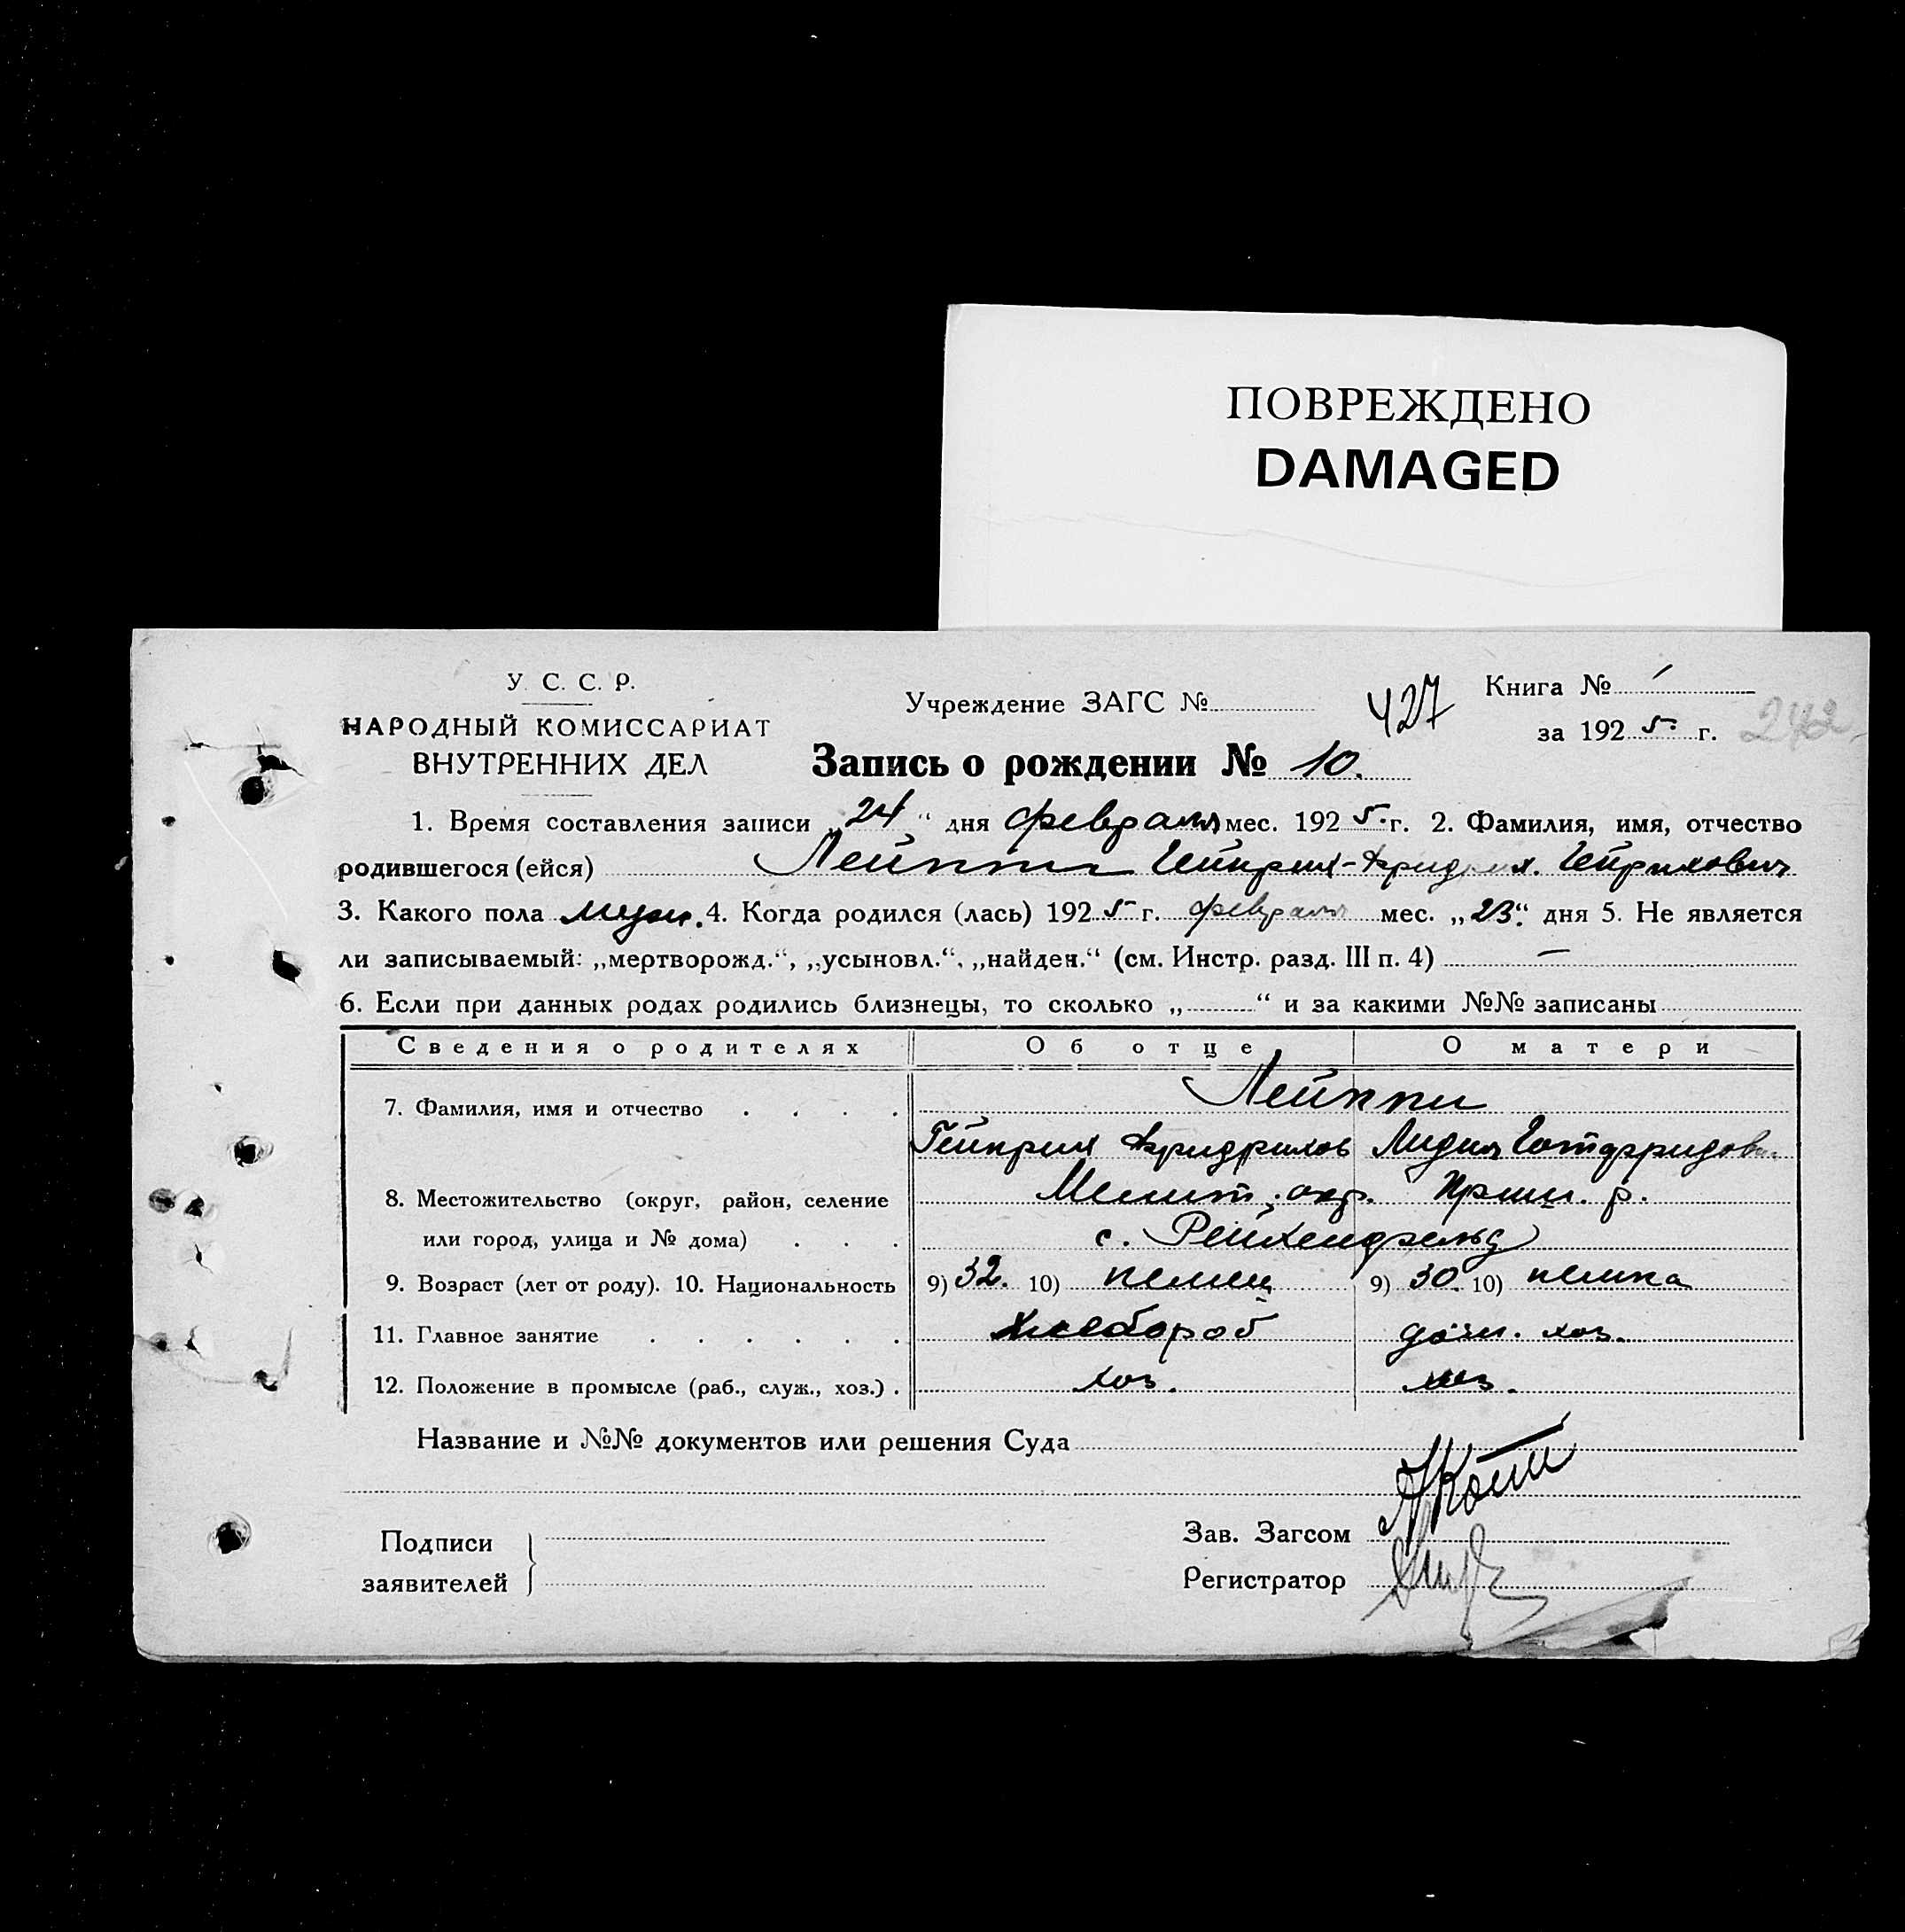 ПОВРЕЖДЕНО
DAMAGED
У. С. С. Р.
НАРОДНЫЙ КОМИССАРИАТ
ВНУТРЕННИХ ДЕЛ
Учреждение ЗАГС №
427
Книга № 1
за 1925 г.
242
Запись о рождении № 10.
1. Время составления записи „24“ дня февраля мес. 1925. г. 2. Фамилия, имя, отчество
родившегося (ейся) Лейппи Гейнрих-Фридрих. Гейрихович
3. Какого пола муж. 4. Когда родился (лась) 1925 г. февраля мес. „23“ дня 5. Не является
ли записываемый: „мертворожд.“, „усыновл.“, „найден.“ (см. Инстр. разд. III п. 4) —
6. Если при данных родах родились близнецы, то сколько „ “ и за какими №№ записаны
Сведения о родителях Об отце О матери
7. Фамилия, имя и отчество . . . . Лейппи
Гейнрих Фридрихов Лидия Готфридовн
8. Местожительство (округ, район, селение Мелит. окр. Пришиб. р.
или город, улица и № дома) . . . с. Рейхенфельд
9. Возраст (лет от роду). 10. Национальность 9) 32. 10) немец 9) 30. 10) немка
11. Главное занятие . . . . . . хлебороб дом. хоз.
12. Положение в промысле (раб., служ., хоз.) . хоз. хоз.
Название и №№ документов или решения Суда
Подписи
заявителей
Зав. Загсом
Регистратор